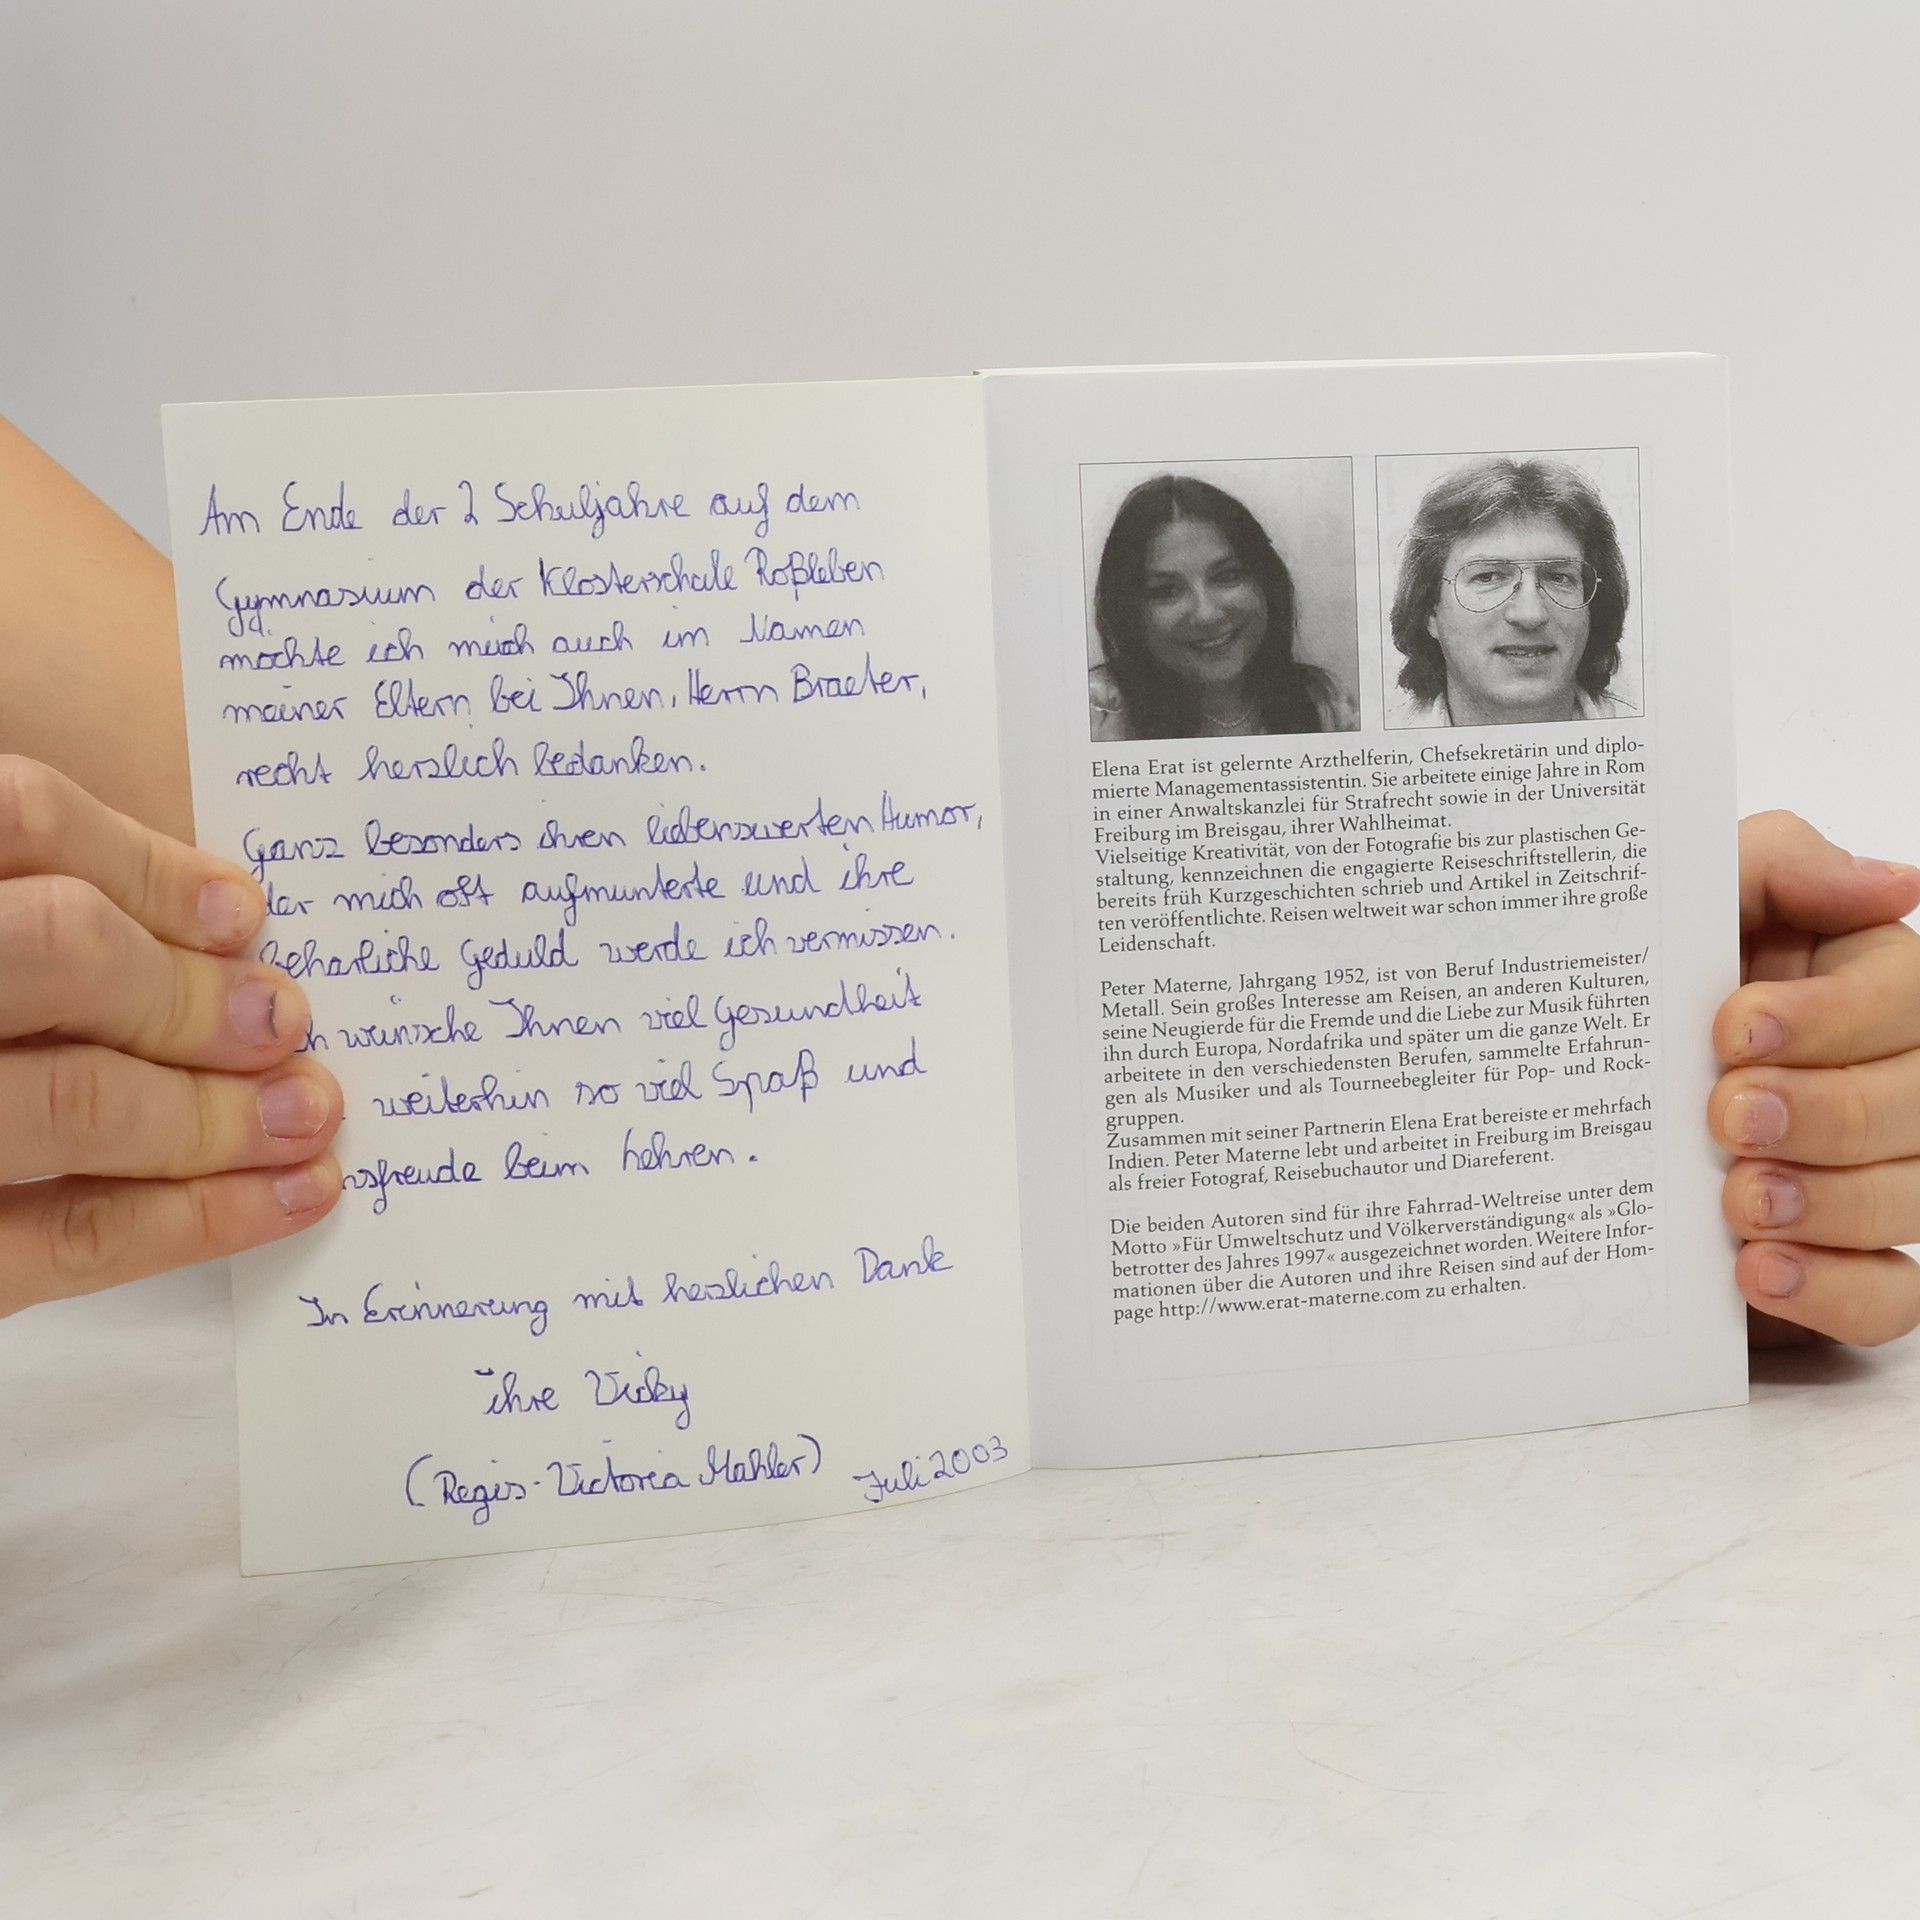 Am Ende der 2 Schuljahre auf dem
Gymnasium der Klosterschule Roßleben
möchte ich mich auch im Namen
meiner Eltern bei Ihnen, Herrn Braeter,
recht herzlich bedanken.
Ganz besonders ihren liebenswerten Humor,
der mich oft aufmunterte und ihre
beharliche Geduld werde ich vermissen.
wünsche Ihnen viel Gesundheit
weiterhin so viel Spaß und
nsfreude beim Lehren.
In Erinnerung mit herzlichen Dank
ihre Vicky
(Regis-Victoria Mahler) Juli 2003
Elena Erat ist gelernte Arzthelferin, Chefsekretärin und diplo-
mierte Managementassistentin. Sie arbeitete einige Jahre in Rom
in einer Anwaltskanzlei für Strafrecht sowie in der Universität
Freiburg im Breisgau, ihrer Wahlheimat.
Vielseitige Kreativität, von der Fotografie bis zur plastischen Ge-
staltung, kennzeichnen die engagierte Reiseschriftstellerin, die
bereits früh Kurzgeschichten schrieb und Artikel in Zeitschrif-
ten veröffentlichte. Reisen weltweit war schon immer ihre große
Leidenschaft.
Peter Materne, Jahrgang 1952, ist von Beruf Industriemeister/
Metall. Sein großes Interesse am Reisen, an anderen Kulturen,
seine Neugierde für die Fremde und die Liebe zur Musik führten
ihn durch Europa, Nordafrika und später um die ganze Welt. Er
arbeitete in den verschiedensten Berufen, sammelte Erfahrun-
gen als Musiker und als Tourneebegleiter für Pop- und Rock-
gruppen.
Zusammen mit seiner Partnerin Elena Erat bereiste er mehrfach
Indien. Peter Materne lebt und arbeitet in Freiburg im Breisgau
als freier Fotograf, Reisebuchautor und Diareferent.
Die beiden Autoren sind für ihre Fahrrad-Weltreise unter dem
Motto »Für Umweltschutz und Völkerverständigung« als »Glo-
betrotter des Jahres 1997« ausgezeichnet worden. Weitere Infor-
mationen über die Autoren und ihre Reisen sind auf der Hom-
page http://www.erat-materne.com zu erhalten.